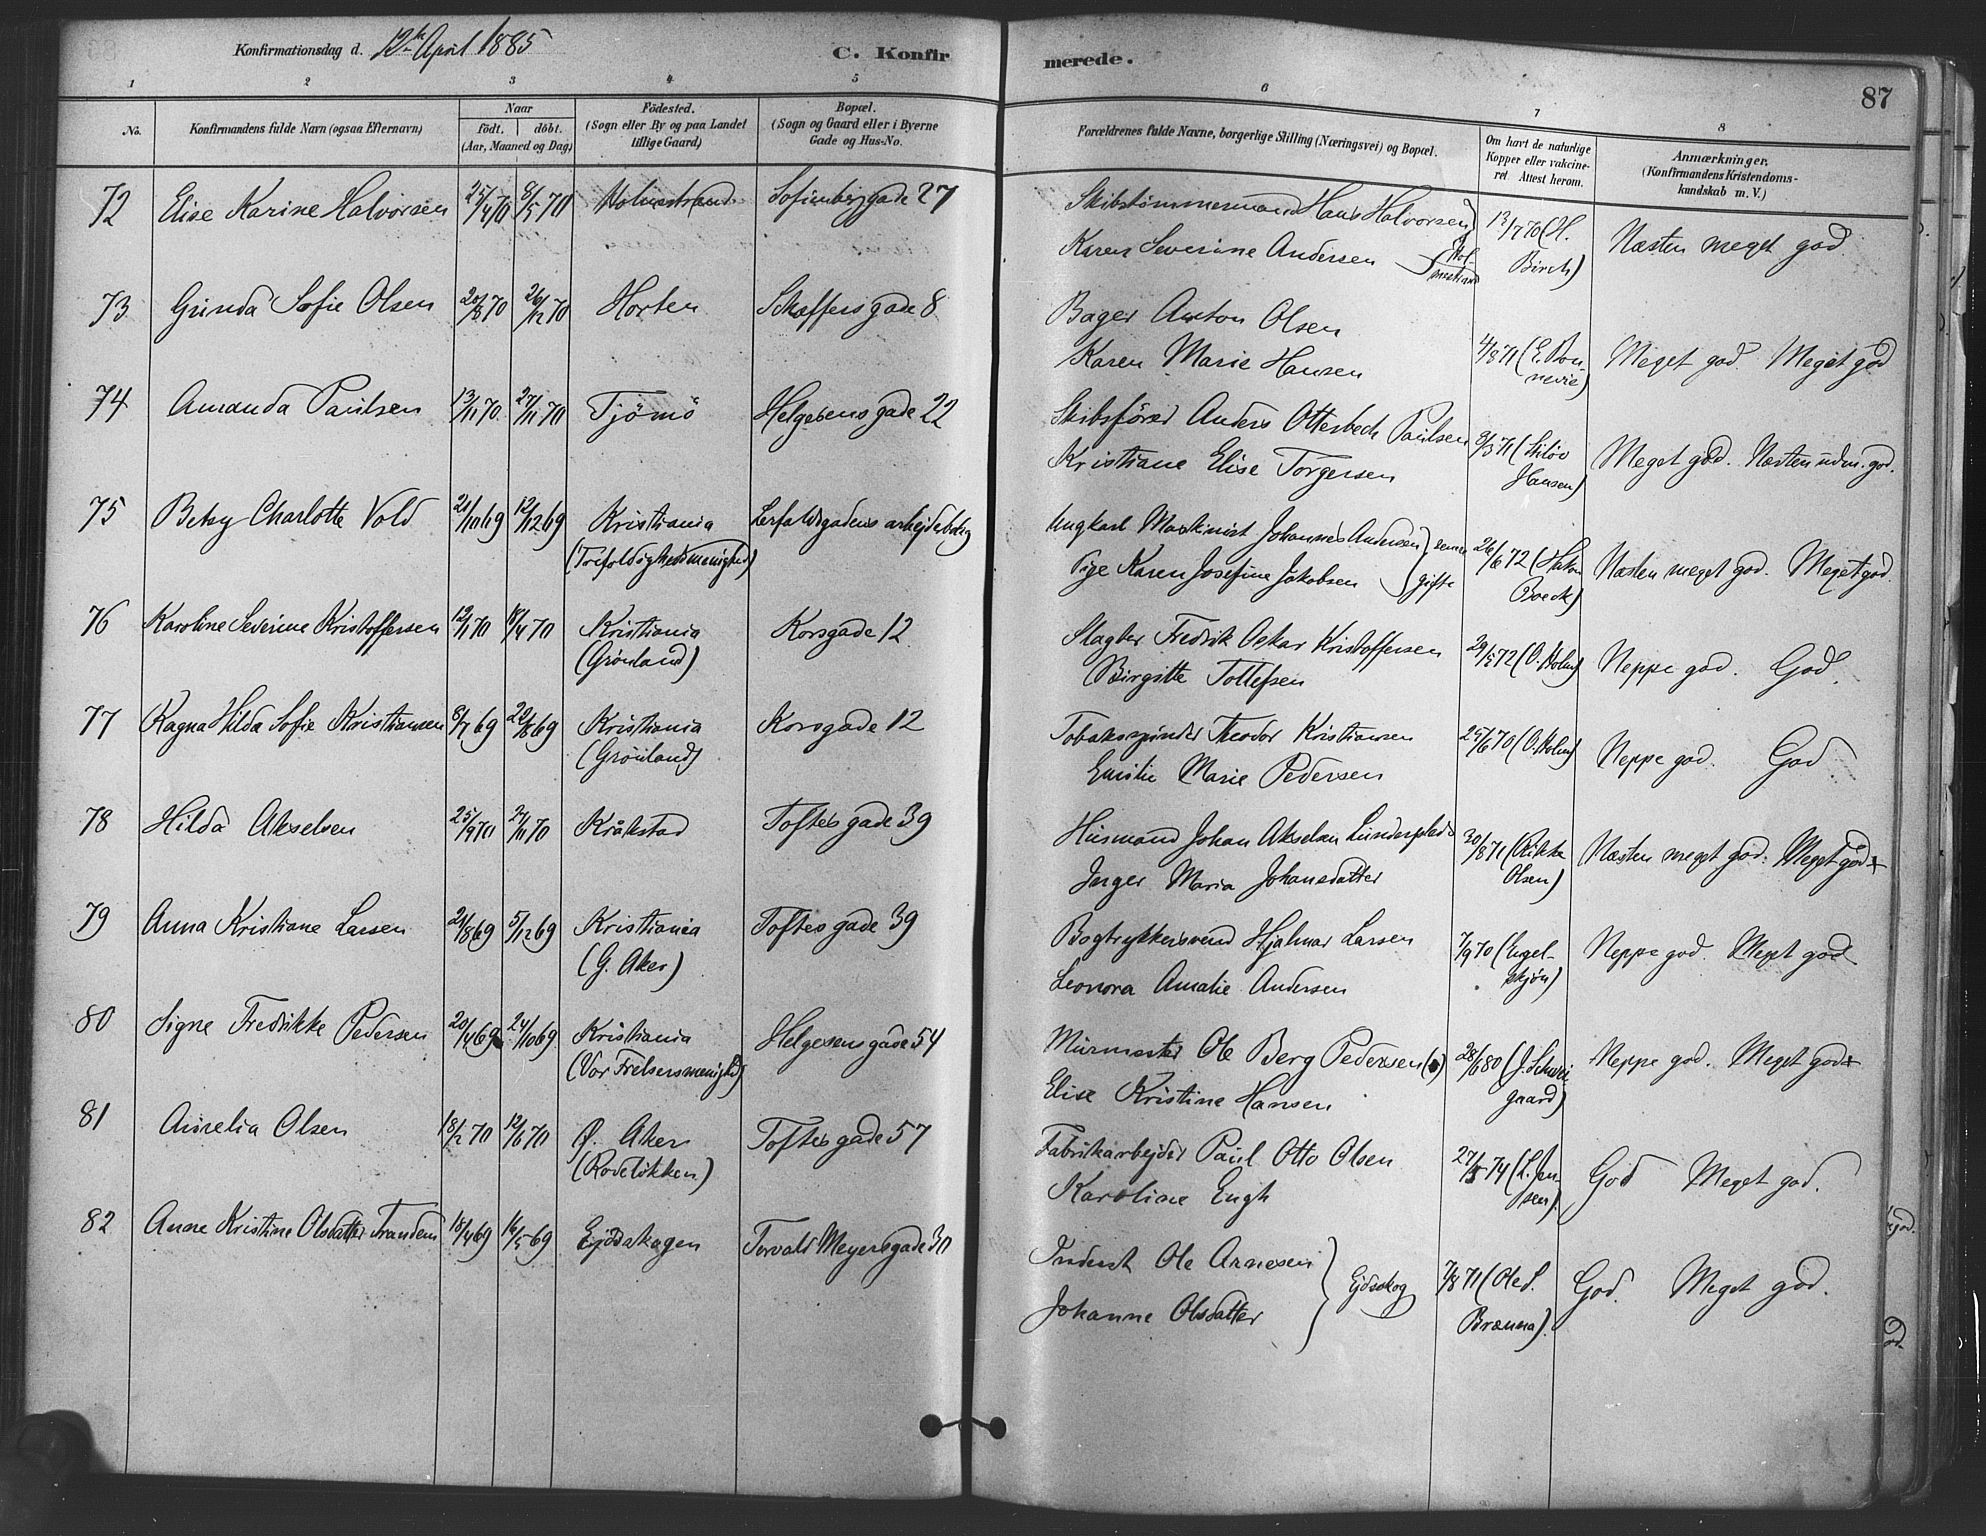 Konfirmationsdag d. 12te April 1885
C. Konfirmerede.
87
1 2 3 4 5 6 7 8
No.
Konfirmandens fulde Navn (ogsaa Efternavn)
Naar
födt. döbt.
(Aar, Maaned og Dag)
Födested.
(Sogn eller By og paa Landet
tillige Gaard)
Bopæl.
(Sogn og Gaard eller i Byerne
Gade og Hus-No.
Forældrenes fulde Navne, borgerlige Stilling (Næringsvei) og Bopæl.
Om havt de naturlige
Kopper eller vakcine-
ret. Attest herom.
Anmærkninger.
(Konfirmandens Kristendoms-
kundskab m. V.)
72 Elise Karine Halvorsen 25/4 70 8/5 70 Holmestrand Sofienberggade 27 Skibstømmermand Hans Halvorsen 13/7 70 (H.
Karen Severine Andersen Holmestrand Birch) Næsten meget god
73 Gunda Sofie Olsen 20/8 70 26/12 70 Horten Schæffers gade 8 Bager Anton Olsen
Karen Marie Hansen 4/8 71 (E. Bonnevie) Meget god. Meget god
74 Amanda Paulsen 13/11 70. 27/11 70 Tjömö Helgesens gade 22 Skibsförer Anders Otterbech Paulsen
Kristiane Elise Torgersen 9/3 71 ( Hansen) Meget god. Næsten udm. god.
75 Betsy Charlotte Vold 21/10 69 12/12 69 Kristiania Lerfaldsgadens arbejderbolig Ungkarl Maskinist Johannes Andersen senere
(Trefoldighedsmenighed) Pige Karen Josefine Jakobsen gifte 26/6 72 ( Boeck) Næsten meget god. Meget god.
76 Karoline Severine Kristoffersen 12/1 70 18/4 70 Kristiania Korsgade 12 Slagter Fredrik Oskar Kristoffersen
(Grönland) Birgitte Tollefsen 29/5 72 (O. Holm) Neppe god. God.
77 Ragna Hilda Sofie Kristiansen 8/7 69 22/8 69 Kristiania Korsgade 12 Tobakspinder Theodor Kristiansen
(Grönland) Emilie Marie Pedersen 25/6 70 (O. Holm) Neppe god. God
78 Hilda Akselsen 25/9 70 27/11 70 Kråkstad Toftes gade 39 Husmand Johan Akselsen Lunderplads
Inger Maria Johansdatter 30/8 71 (Rikke Olsen) Næsten meget god. Meget god
79 Anna Kristiane Larsen 21/8 69 5/12 69 Kristiania Toftes gade 39 Bogtrykkersvend Hjalmar Larsen
(G. Aker) Leonora Amalie Andersen 7/9 70 (Engelskjøn) Neppe god. Meget god
80 Signe Fredrikke Pedersen 20/4 69 24/10 69 Kristiania Helgesens gade 54 Murmester Ole Berg Pedersen
(Vor Frelsers menighed) Elise Kristine Hansen 28/6 80 (J. Schweigaard) Neppe god. Meget god
81 Aurelia Olsen 18/2 70 12/6 70 Ø. Aker Toftes gade 57 Fabrikarbejder Paul Otto Olsen
(Rodeløkken) Karoline Engh 27/5 74 (L. Jensen). God Meget god.
82 Anne Kristine Olsdatter Tranden 18/4 69 16/5 69 Ejdskogen Torvald Meyersgade 30 Inderst Ole Arnesen
Johanne Olsdatter Ejdskog 7/8 71 (Ole S. Brænna). God. Meget god.